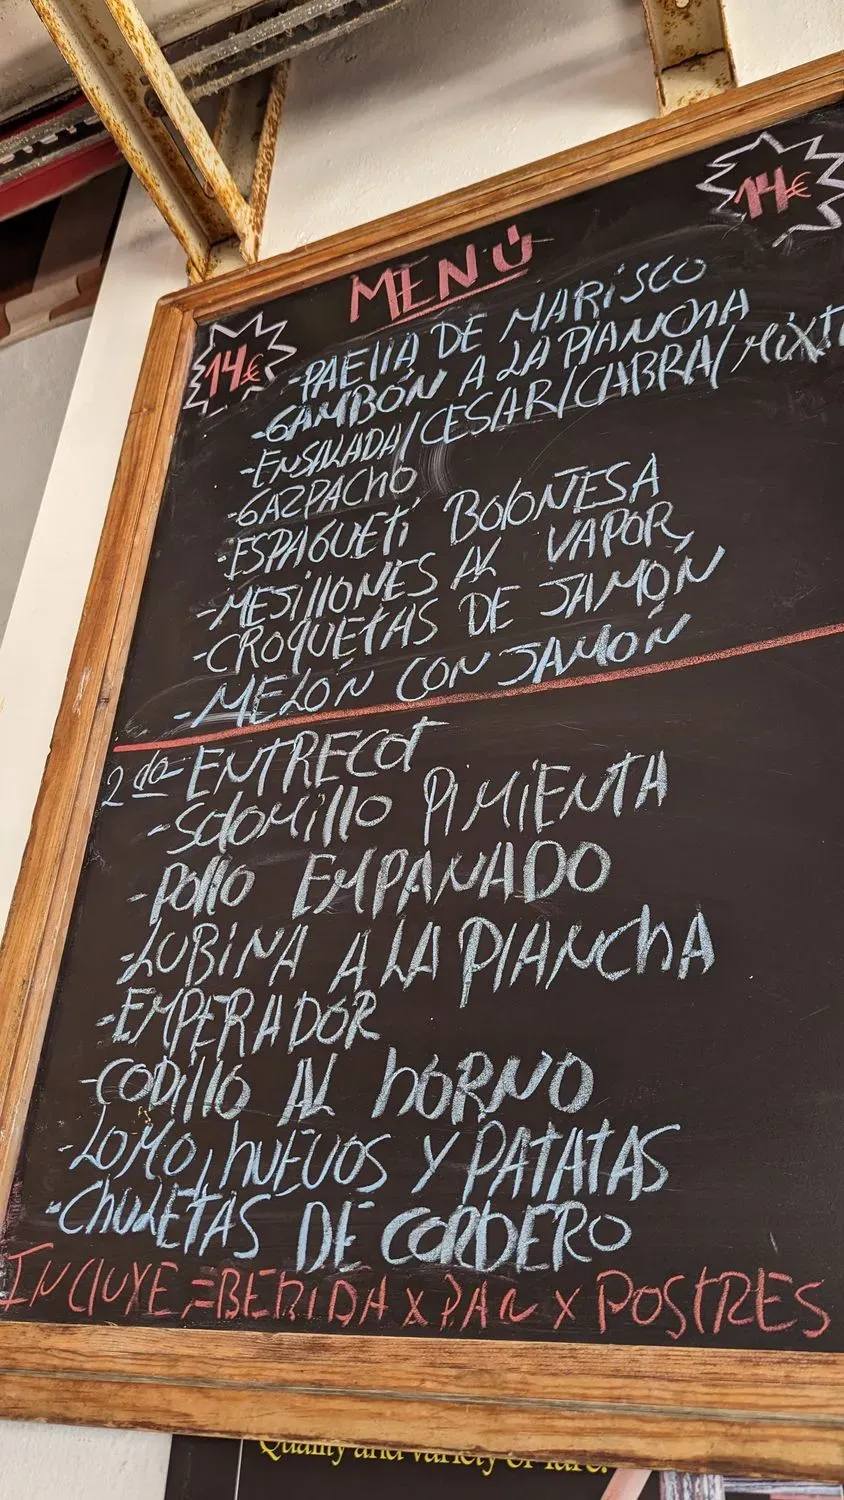 14€
MENÚ
14€
-PAELLA DE MARISCO
-GAMBÓN A LA PLANCHA
-ENSALADA/CESAR/CABRA/MIXT
-GAZPACHO
-ESPAGUETI BOLONESA
-MEJILLONES AL VAPOR
-CROQUETAS DE JAMÓN
-MELÓN CON JAMÓN
2do-ENTRECOT
-SOLOMILLO PIMIENTA
-POLLO EMPANADO
-LUBINA A LA PLANCHA
-EMPERADOR
-CODILLO AL HORNO
-LOMO, HUEVOS Y PATATAS
-CHULETAS DE CORDERO
INCLUYE=BEBIDA X PAN X POSTRES
Quality and variety of fare.